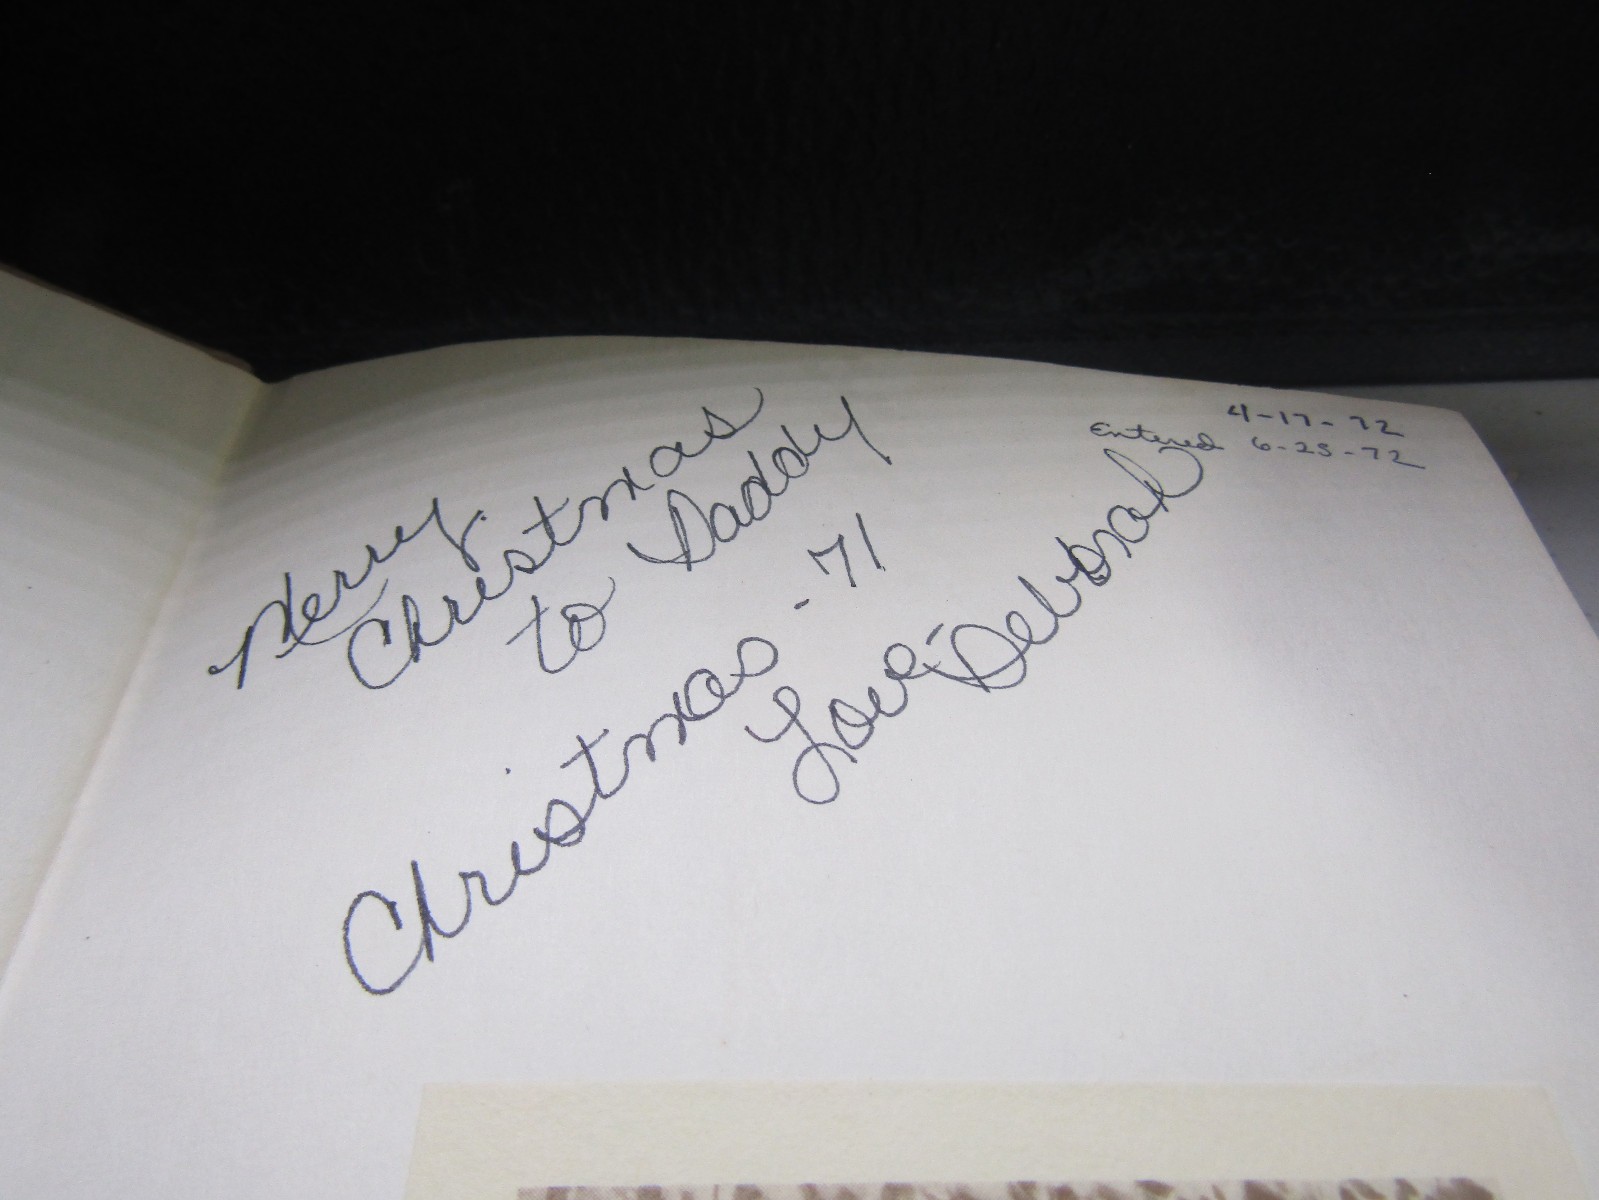 4-17-72
Entered 6-25-72
Merry
Christmas
to Daddy
Christmas - 71
Love - Deborah